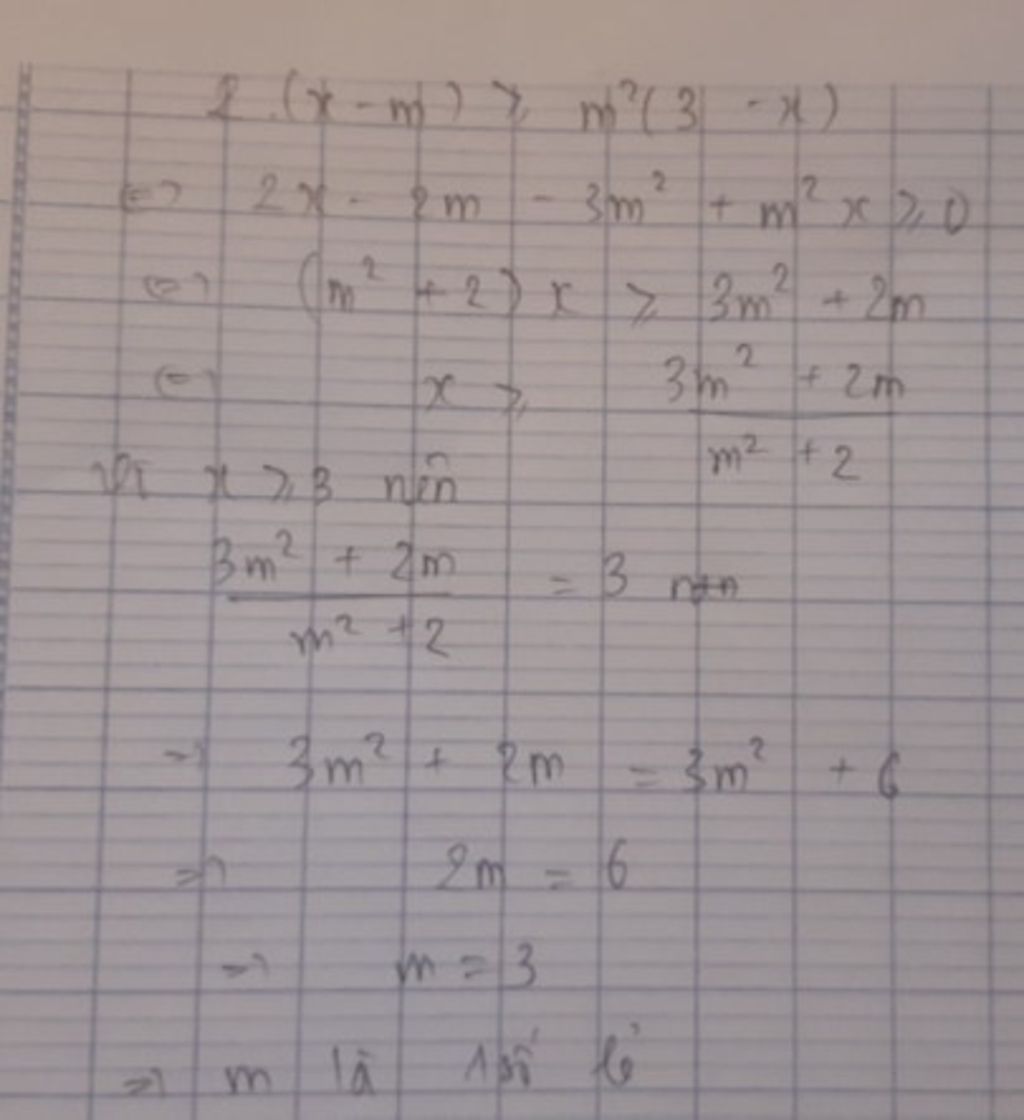 2.(x - m) ≥ m²(3 - x)
<=> 2x - 2m - 3m² + m²x ≥ 0
<=> (m² + 2)x ≥ 3m² + 2m
<=> x ≥ (3m² + 2m)/(m² + 2)
Vì x ≥ 3 nên
(3m² + 2m)/(m² + 2) = 3
=> 3m² + 2m = 3m² + 6
=> 2m = 6
=> m = 3
=> m là 1 số lẻ